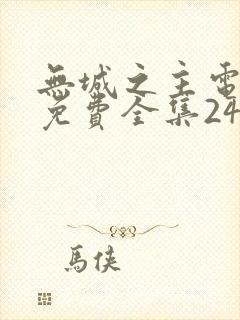 無城之主電
免費全集24
馬俠